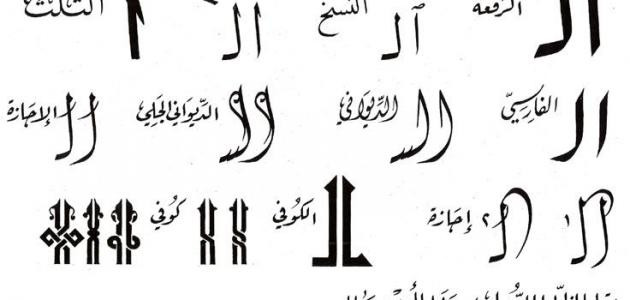 ال الرقعة ال النسخ ال الثلث
ال الفارسي ال الديواني ال الديواني الجلي ال الإجازة
ال ١ ال ٢ إجازة ال الكوفي ال ال كوفي